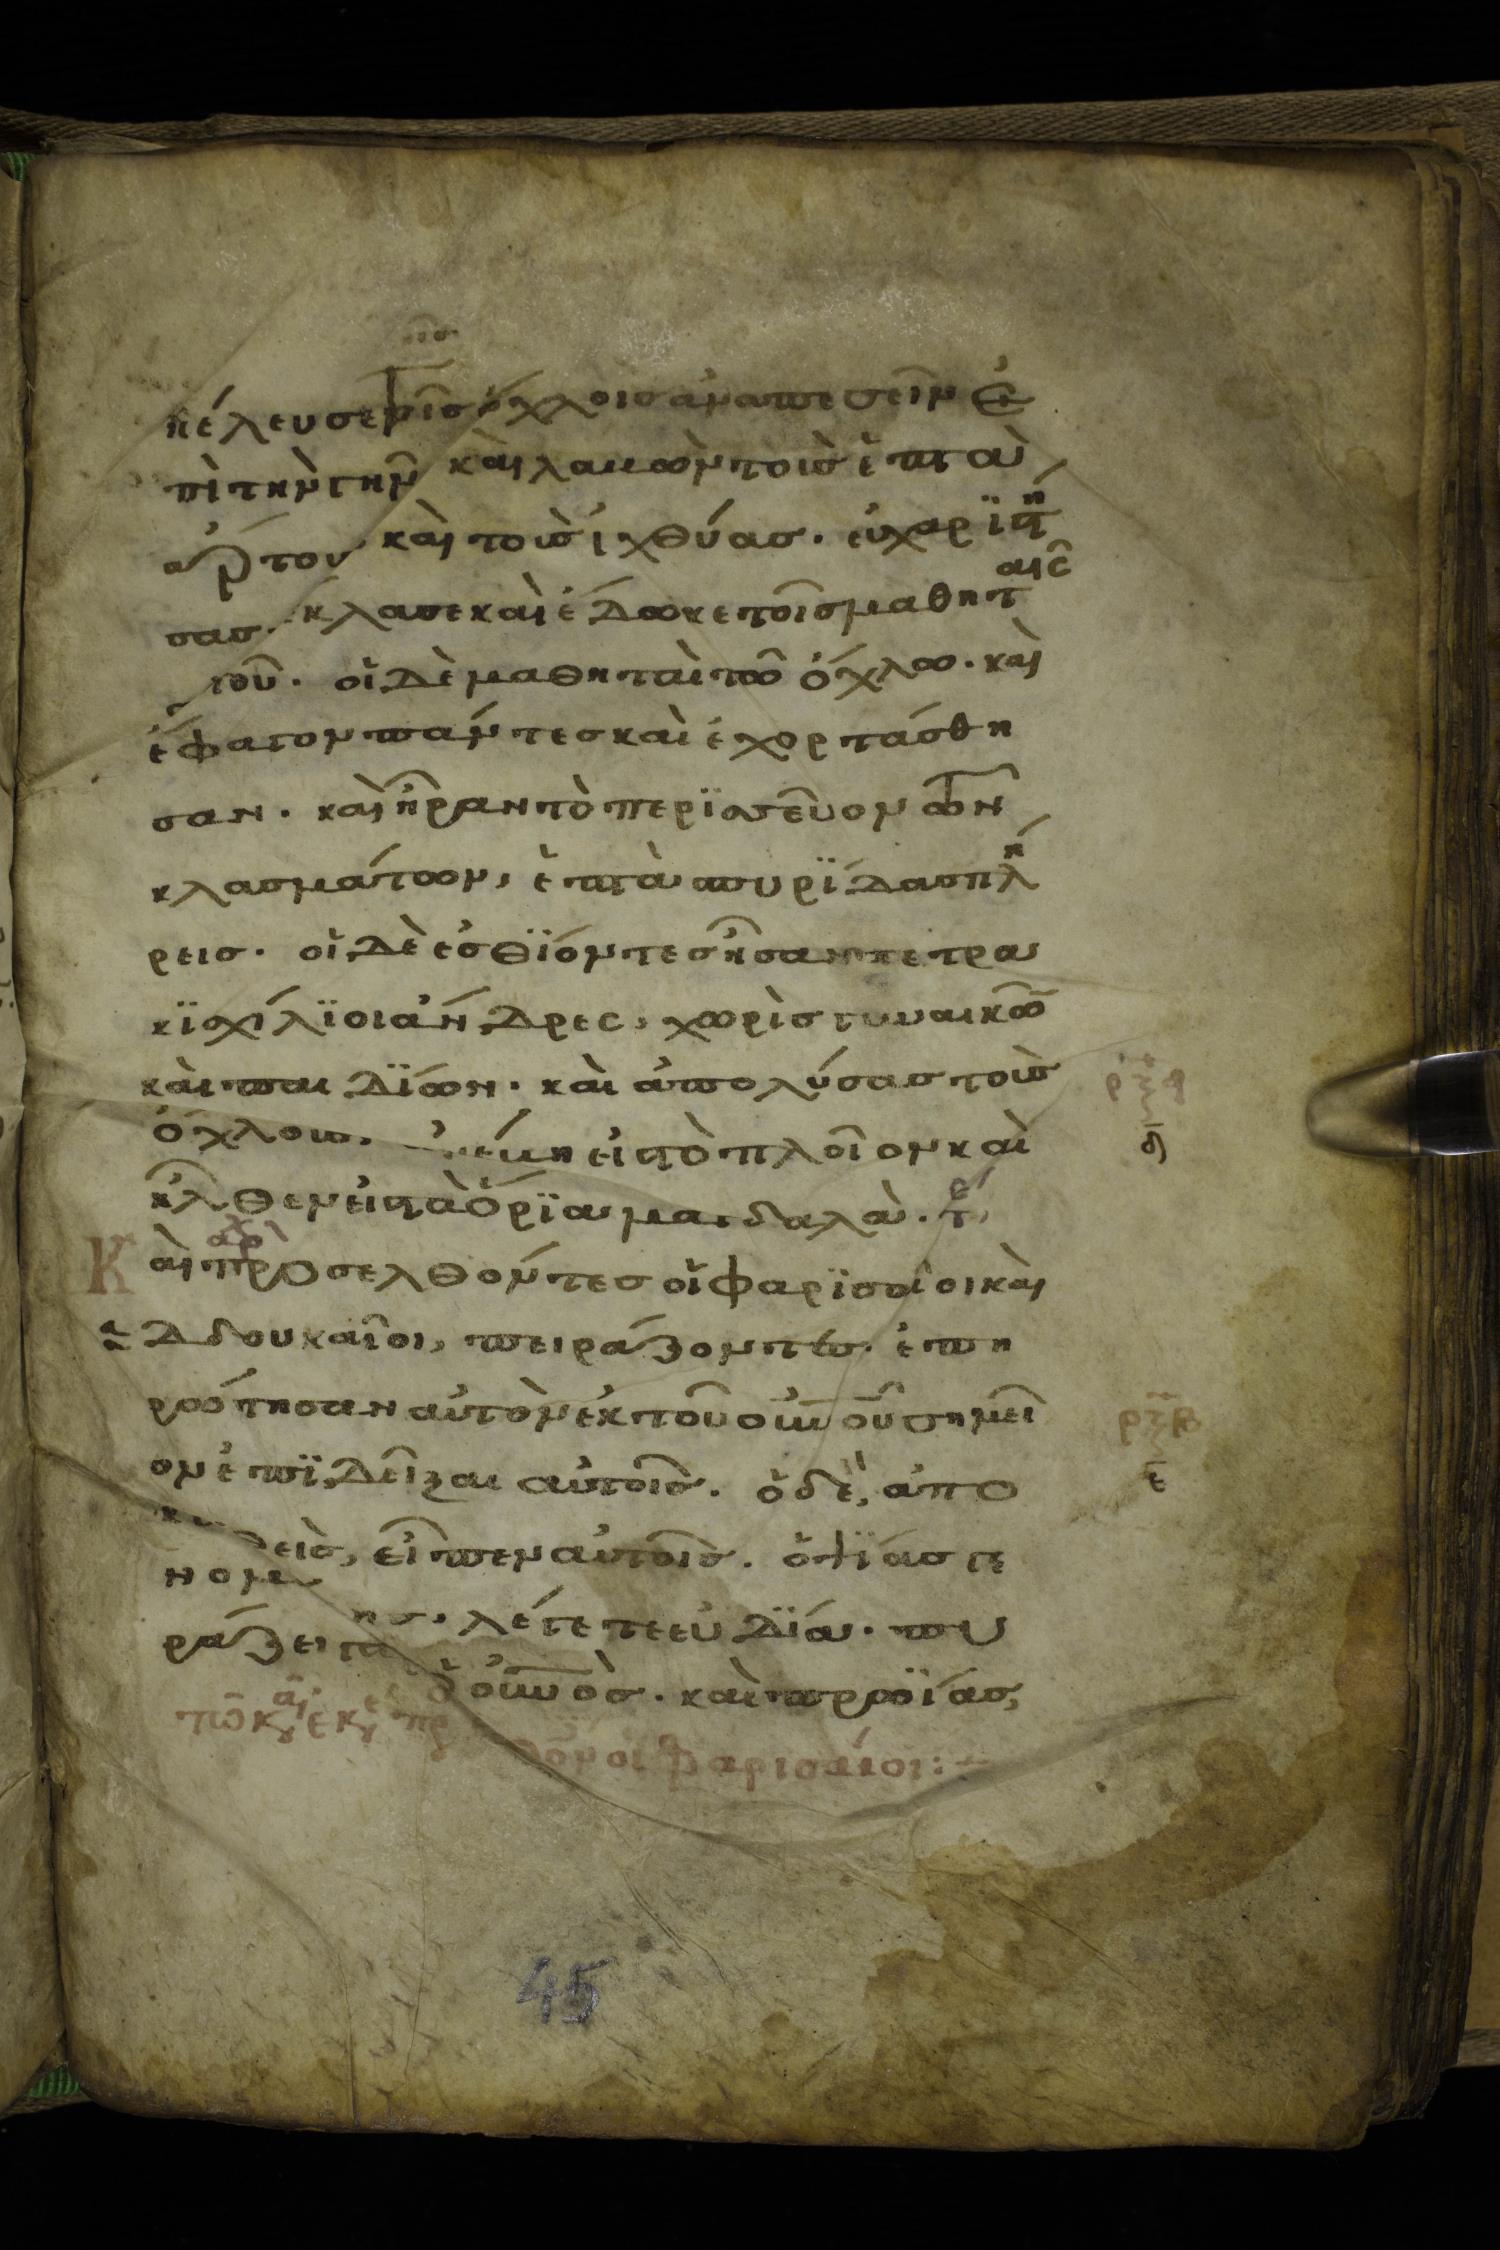 κέλευσε τοῖς ὄχλοις ἀναπεσεῖν ἐ
πὶ τὴν γῆν καὶ λαβὼν τοὺς ἑπτὰ
ἄρτου καὶ τοὺς ἰχθύας. εὐχαρϊστή
σας. ἔκλασε καὶ ἔδωκε τοῖς μαθηταῖς
τοῦ. οἱ δὲ μαθηταὶ τῶ ὄχλω. καὶ
ἔφαγον πάντες καὶ ἐχορτάσθη
σαν. καὶ ἦραν τὸ περϊσσεῦον τῶν
κλασμάτων, ἑπτὰ σπυρϊδας πλή
ρεις. οἱ δὲ ἐσθϊόντες ἦσαν τετρα
κϊσχίλϊοι ἄνδρες, χωρὶς γυναικῶν
καὶ παιδϊων. καὶ ἀπολύσας τοὺς
ὄχλους. ἐνέβη εἰς τὸ πλοῖον καὶ
ἦλθεν εἰς τὰ ὅρϊα μαγδαλά. τε
Καὶ προσελθόντες οἱ φαρϊσαῖοι καὶ
σαδδουκαῖοι, πειράζοντες ἐπη
ρώτησαν αὐτὸν ἐκ τοῦ οὐνοῦ σημεῖ
ον ἐπϊδεῖξαι αὐτοῖς. ὁ δὲ, ἀπο
κριθεὶς, εἶπεν αὐτοῖς. ὀψϊας γε
νομένης. λέγετε εὐδϊα. πυ
ράζει γὰρ ὁ οὐνὸς. καὶ πρωϊας,
τῶ κυ
οἱ Φαρισαίοι:
45